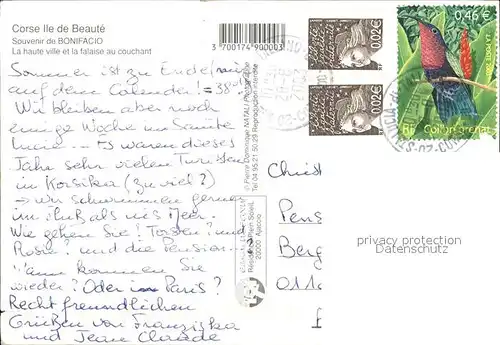 Corse Ile de Beauté
Souvenir de BONIFACIO
La haute ville et la falaise au couchant
3 700174 900003
Sommer ist zu Ende (nur
auf dem Calender! = 38°
Wir bleiben aber noch
einige Woche in Sainte
Lucie — Es waren dieses
Jahr sehr vielen Touristen
in Korsika (zu viel?)
→ wir schwimmen gerne
im Fluß als ins Meer.
Wie gehen Sie? Torsten? und
Rosie? und die Pension...?
Wann kommen Sie
wieder? Oder in Paris?
Recht freundlichen
Grüßen von Franziska
und Jean Claude
© Pierre Dominique NATALI Photographe
Tél 04 95 21 50 29 Reproduction interdite
Résidence Plein Soleil
20000 Ajaccio
0,02€
0,02€
0,46 €
LA POSTE
RF Colibri grenat
Christ
Pens
Berg
011
privacy protection
watermark